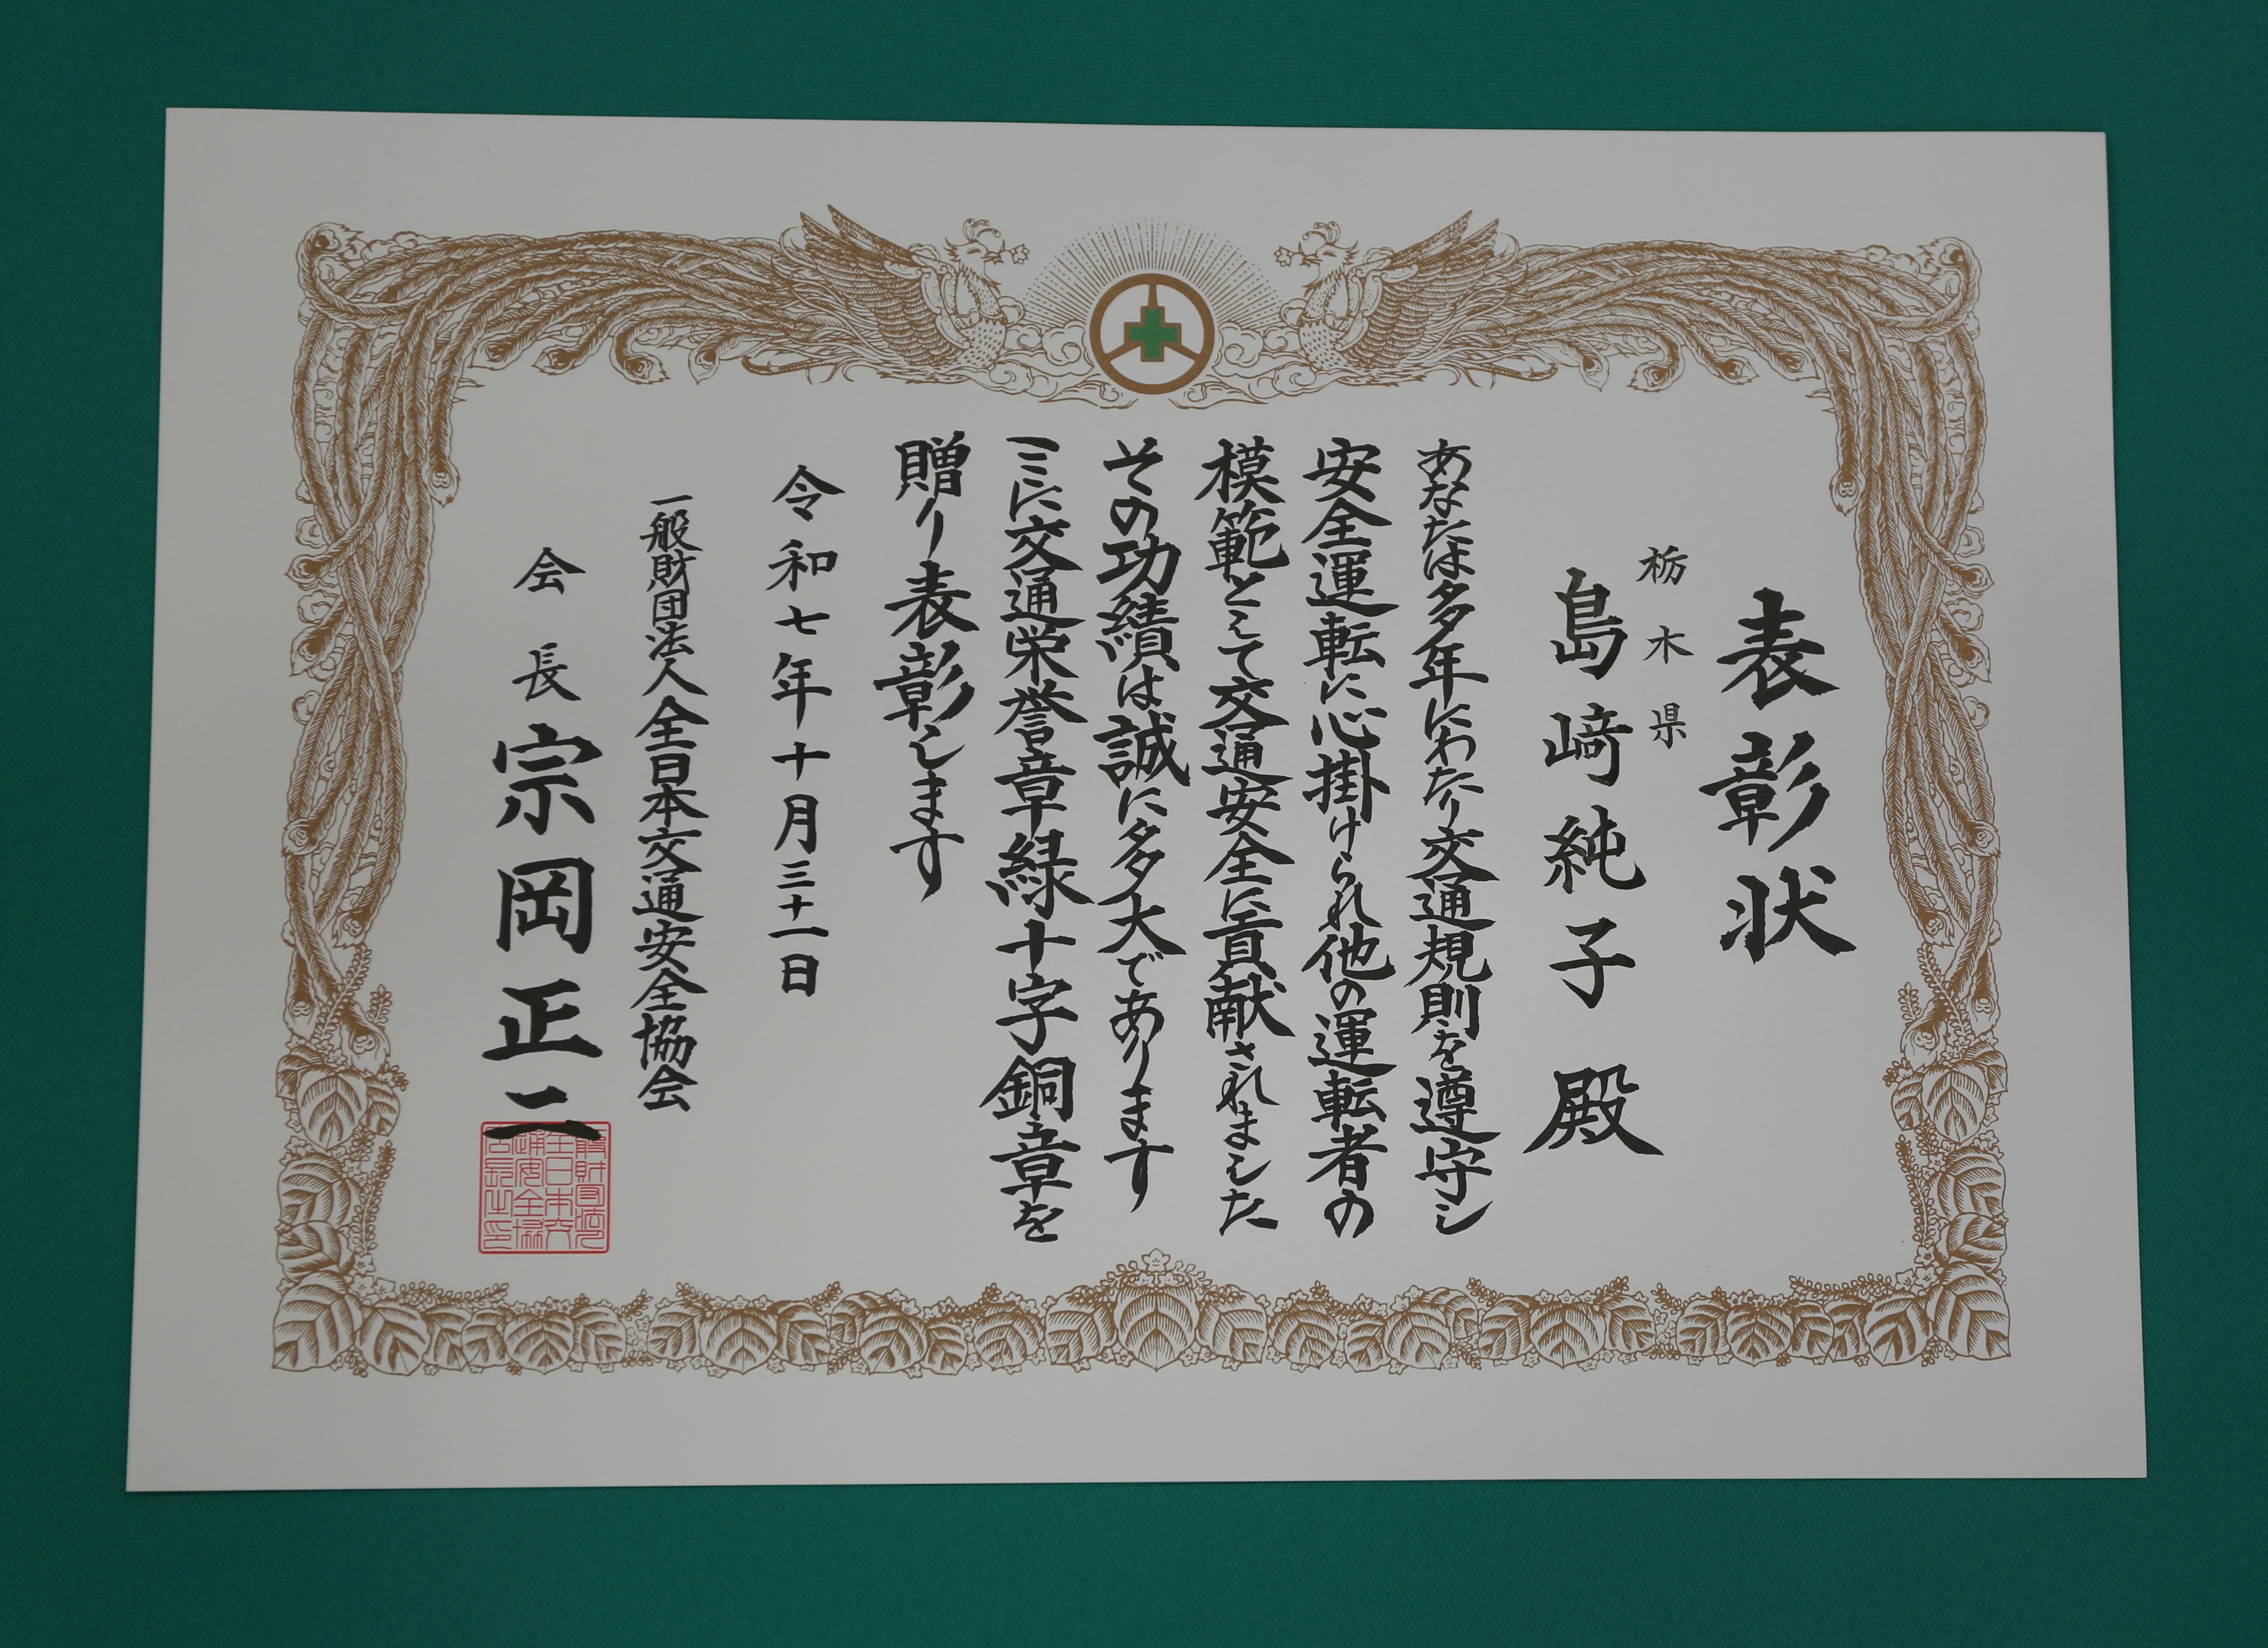 表彰状
栃木県
島﨑純子 殿
あなたは多年にわたり交通規則を遵守し
安全運転に心掛けられ他の運転者の
模範として交通安全に貢献されました
その功績は誠に多大であります
ここに交通栄誉章緑十字銅章を
贈り表彰します
令和七年十月三十一日
一般財団法人全日本交通安全協会
会長 宗岡正二
一般財団法人
全日本交
通安全協
会長之印